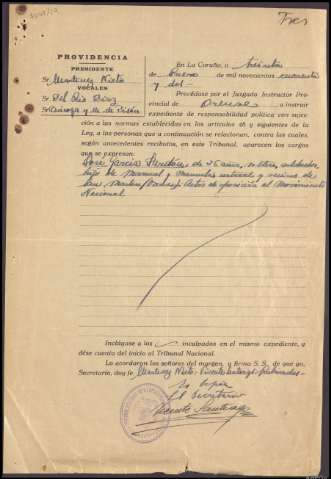 Tres
PROVIDENCIA
PRESIDENTE
Sr. Martinez Nieto
VOCALES
Sr. Del Rio Perez
Sr.
En La Coruña, a
de Enero de mil novecientos cuarenta
y dos.-
Procédase por el Juzgado Instructor Pro-
vincial de Orense a instruir
expediente de responsabilidad política con suje-
ción a las normas establecidas en los artículos 46 y siguientes de la
Ley, a las personas que a continuación se relacionan, contra las cuales
según antecedentes recibidos, en este Tribunal, aparecen los cargos
que se expresan:
José García de 26 años, soltero, labrador,
hijo de Manuel y Manuela natural y vecino de
San Martin Actos de oposición al Movimiento
Nacional
Incóguese a los inculpados en el mismo expediente, y
dése cuenta del inicio al Tribunal Nacional.
Lo acordaron los señores del margen, y firma S. S. de que yo,
Secretario, doy fe Martinez Nieto.
Es copia
El Secretario
Vicente Santiago